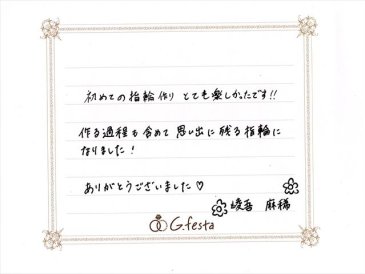 初めての指輪作り とても楽しかったです!!
作る過程も含めて 思い出に残る指輪に
なりました!
ありがとうございました♡
綾香 麻稀
G.festa